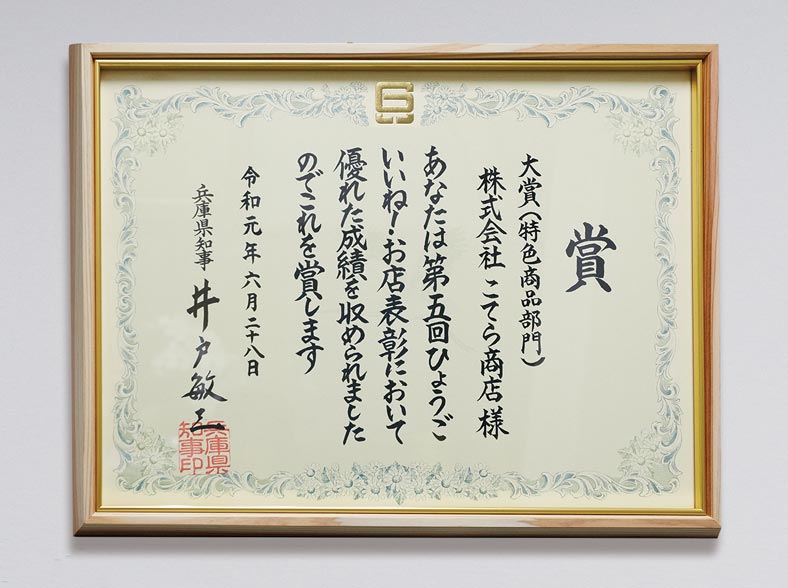 賞
大賞（特色商品部門）
株式会社 こてら商店 様
あなたは第五回ひょうご
いいね！お店表彰において
優れた成績を収められました
のでこれを賞します
令和元年六月二十八日
兵庫県知事 井戸敏三
兵庫県
知事印